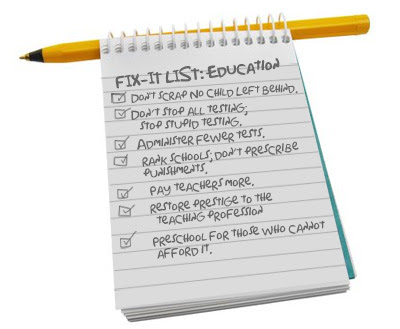 FIX-IT LIST: EDUCATION
DON'T SCRAP NO CHILD LEFT BEHIND.
DON'T STOP ALL TESTING;
STOP STUPID TESTING.
ADMINISTER FEWER TESTS.
RANK SCHOOLS; DON'T PRESCRIBE
PUNISHMENTS.
PAY TEACHERS MORE.
RESTORE PRESTIGE TO THE
TEACHING PROFESSION
PRESCHOOL FOR THOSE WHO CANNOT
AFFORD IT.